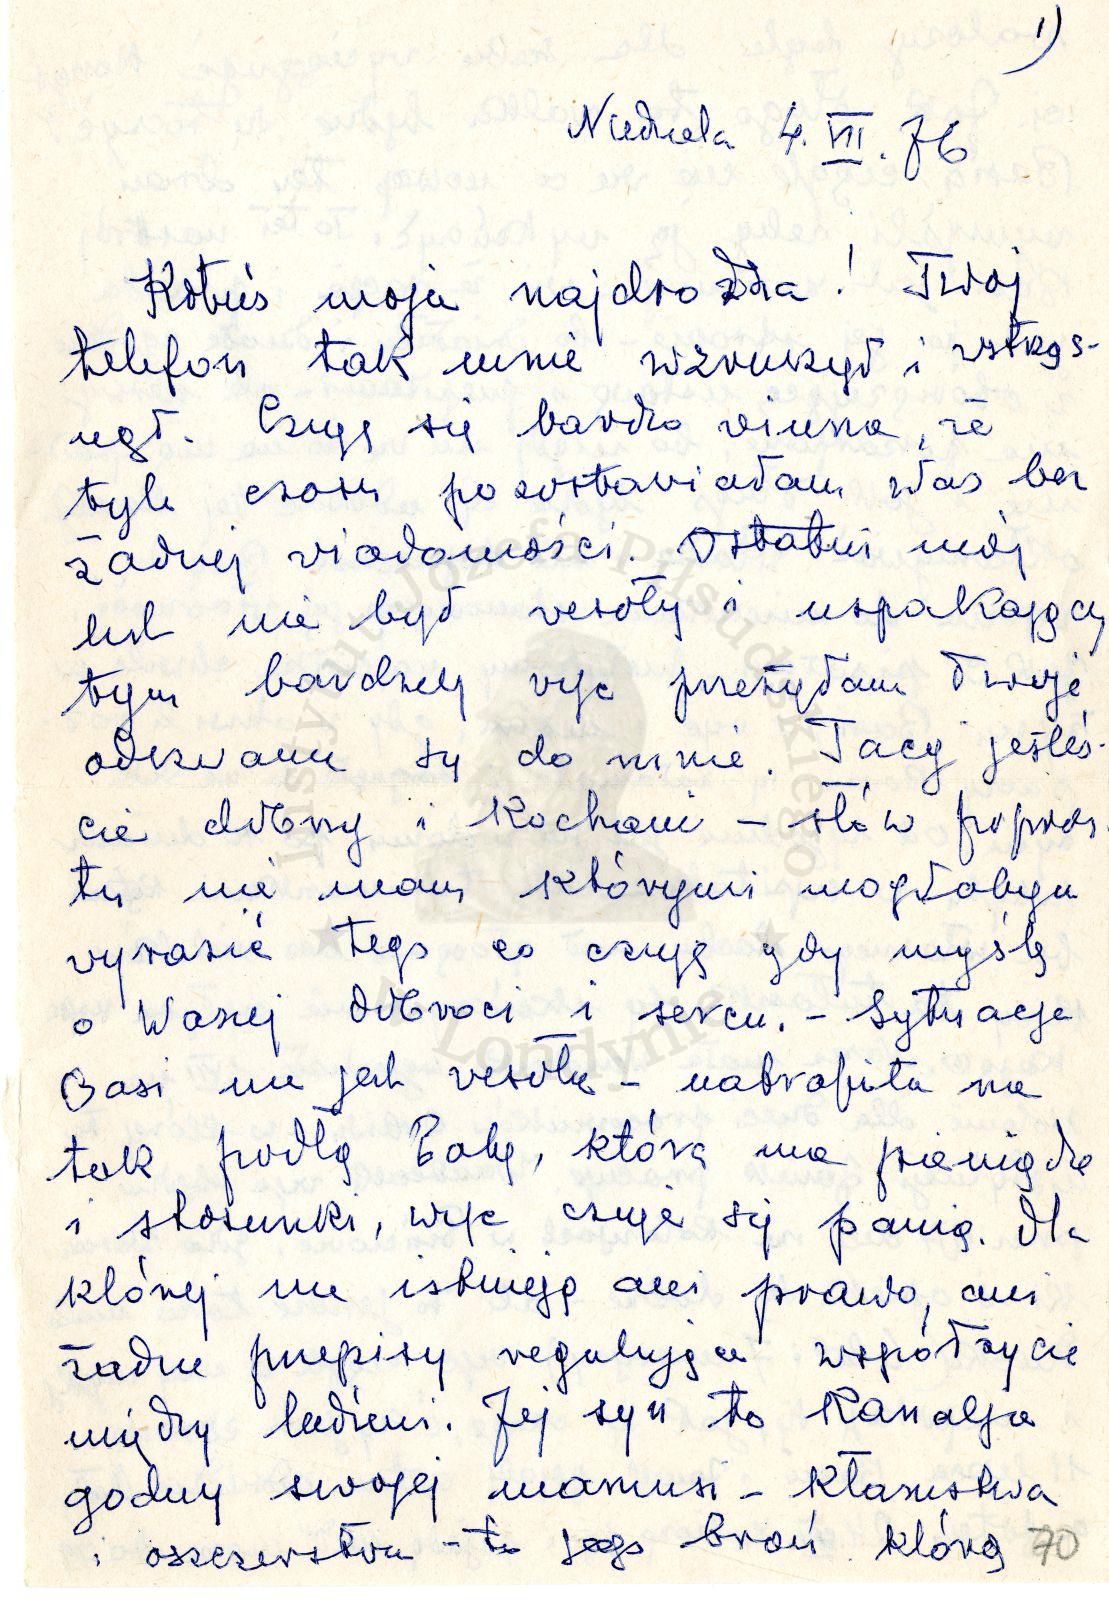 1)
Niedziela 4. VII. 76
Kotuś moja najdroższa! Twój
telefon tak mnie wzruszył i wstrzą-
snął. Czuję się bardzo winna, że
tyle czasu pozostawiałam Was bez
żadnej wiadomości. Ostatni mój
list nie był wesoły i uspakajający
tym bardziej więc przeżyłam Twoje
odezwanie się do mnie. Tacy jesteś-
cie dobrzy i kochani – słów popros-
tu nie mam którymi mogłabym
wyrazić tego co czuję gdy myślę
o Waszej dobroci i sercu. – Sytuacja
Basi nie jest wesoła – natrafiła na
tak podłą Babę, która ma pieniądze
i stosunki, więc czuje się panią. dla
której nie istnieją ani prawo, ani
żadne przepisy regulujące współżycie
między ludźmi. Jej syn to Kanalja
godny swojej mamusi – kłamstwa
i oszczerstwa – to jego broń którą
70
Instytut Józefa Piłsudskiego
w Londynie